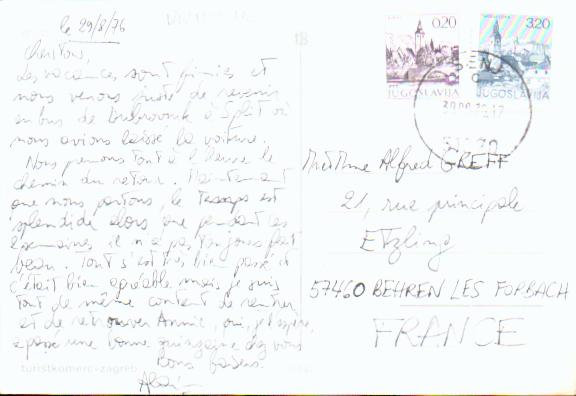 le 29/8/76
Chers tous,
Les vacances sont finies et
nous venons juste de revenir
en bus de Dubrovnik à Split où
nous avions laissé la voiture.
Nous prenons tout à l'heure le
chemin du retour. Maintenant
que nous partons, le temps est
splendide alors que pendant les
2 semaines il n'a pas toujours fait
beau. Tout s'est très bien passé et
c'était bien agréable mais je suis
tout de même content de rentrer
et de retrouver Annie, qui, je l'espère,
a passé une bonne quinzaine chez vous
Bons baisers.
Alain
turistkomerc-zagreb
0.20
JUGOSLAVIJA
3.20
JUGOSLAVIJA
SENJ
Alfred GREFF
21, rue principale
Etzling
57460 BEHREN LES FORBACH
FRANCE